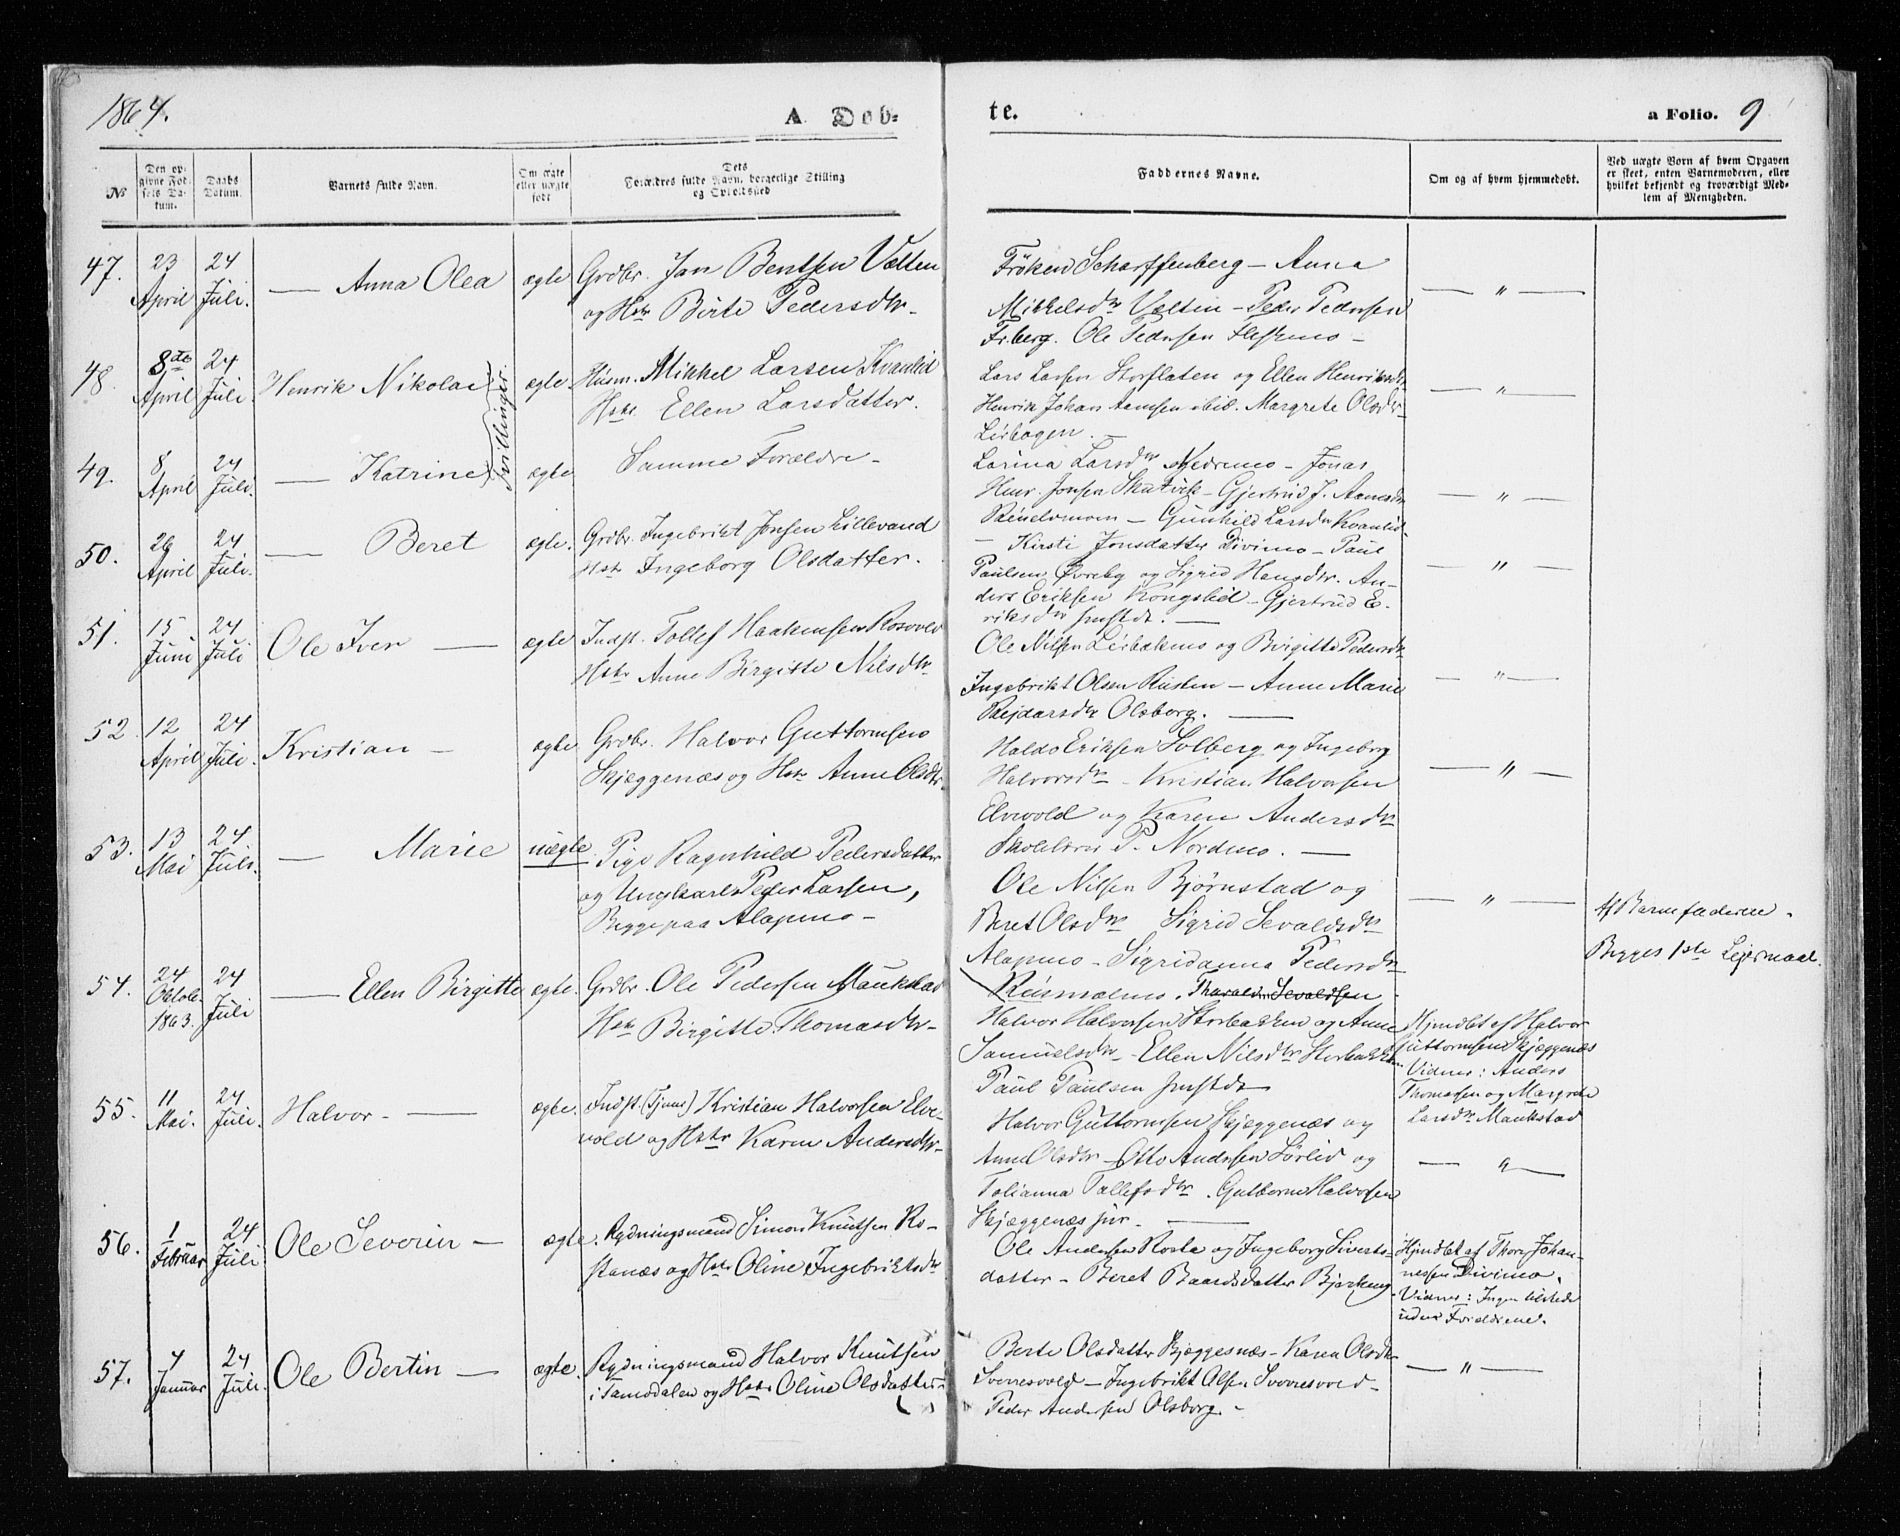 1864.
A Døb-
te.
a Folio. 9
No
Den op-
givne Fød-
sels Da-
tum.
Daabs
Datum.
Barnets fulde Navn.
Om ægte
eller uægte
født
Dets
Forældres fulde Navn, borgerlige Stilling
og Opholdsted
Faddernes Navne.
Om og af hvem hjemmedøbt.
Ved uægte Børn af hvem Opgaven
er skeet, enten Barnemoderen, eller
hvilket bekjendt og troværdigt Med-
lem af Menigheden.
47. 23 April 24 Juli. — Anna Olea ægte Grdbr. Jan Bentsen Vælten
og Hstr Birte Pedersdtr.
Frøken Scharffenberg — Anna
Mikkelsdtr Væltin — Peder Pedersen
Frberg. Ole Pedersen —
— " —
48. 8de April 24 Juli Henrik Nikolai ægte Husm. Mikkel Larsen Kvanlid
Hstr. Ellen Larsdatter.
Tvillinger.
Lars Larsen Storflaten og Ellen Henriksdtr
Henrik Johan Aamsen ibid. Margrete Olsdtr
Leirhagen. —
— " —
49. 8 April 24 Juli. — Katrine ægte Samme Forældre —
Larina Larsdtr Nedremo — Jonas
Henr. Jonsen Skatvik — Gjertrud J. Aamsdtr
— Gunhild Larsdtr Kvanlid.
— " —
50. 26 April 24 Juli. — Beret ægte. Grdbr. Ingebrikt Jonsen Lillevand
Hstr Ingeborg Olsdatter.
— Kirsti Jonsdatter Divimo — Paul
Paulsen Øvreby og Sigrid Hansdtr. An-
ders Eriksen Kongslid — Gjertrud E-
riksdtr —
— " —
51. 15 Juni 24 Juli Ole Iver — ægte Indst. Tollef Haakensen Rosvold
Hstr Anne Birgitte Nilsdtr
Ole Nilsen Leirbakmo og Birgitte Pedersdtr
Ingebrikt Olsen Rusten — Anne Marie
Rejdarsdtr Olsborg. —
— " —
52. 12 April 24 Juli. Kristian — ægte Grdbr. Halvor Guttormsen
Skjæggenæs og Hstr Anne Olsdtr.
Haldo Eriksen Solberg og Ingeborg
Halvorsdtr — Kristian Halvorsen
Elvevold og Karen Andersdtr
Skolelærer P. Nordmo. —
— " —
53. 13 Mai 24 Juli. — Marie uægte Pige Ragnhild Pedersdatter
og Ungkarl Peder Larsen,
Begge paa Alapmo —
Ole Nilsen Bjørnstad og
Beret Olsdtr Sigrid Sevaldsdtr
Alapmo — Sigridanna Pedersdtr
Rusmælmo. Tharald Sevaldsen
— " —
Af Barnefaderen.
Begges 1ste Lejermaal.
54. 24 Oktobr. 1863. 24 Juli — Ellen Birgitte ægte. Grdbr. Ole Pedersen Maukstad
Hstr Birgitte Thomasdtr —
Halvor Halvorsen Storbakken og Anne
Samuelsdtr — Ellen Nilsdtr Storbakken
Paul Paulsen
Hjmdbt af Halvor
Guttormsen Skjæggenæs
Vidner: Anders
Thomassen og Margrete
Larsdtr Maukstad
55. 11 Mai. 24 Juli. Halvor — ægte. Indst. (Tjener) Kristian Halvorsen Elve-
vold og Hstr Karen Andersdtr —
Halvor Guttormsen Skjæggenæs og
Anne Olsdtr — Otto Andersen Sørlid og
Tolianna Tollefsdtr. Gutborm Halvorsen
Skjæggenæs jur. —
— " —
56. 1 Februar 24 Juli Ole Severin — ægte. Rydningsmand Simon Knutsen Ro-
stanæs og Hstr Oline Ingebriktsdtr
Ole Andersen Rosta og Ingeborg Siverts-
datter — Beret Baardsdatter Bjerkeng.
Hjmdbt af Thore Johan-
nessen Divimo.
Vidner: Ingen tilstede
uden Forældrene.
57. 4 Januar 24 Juli. Ole Bertin — ægte. Rydningsmand Halvor Knutsen
i Tamokdalen og Hstr Oline Olsdatter.
Berte Olsdatter Skjæggesnæs — Karen Olsdtr
Sverresvold — Ingebrikt Olsen Sverresvold —
Peder Andersen Olsborg. —
— " —